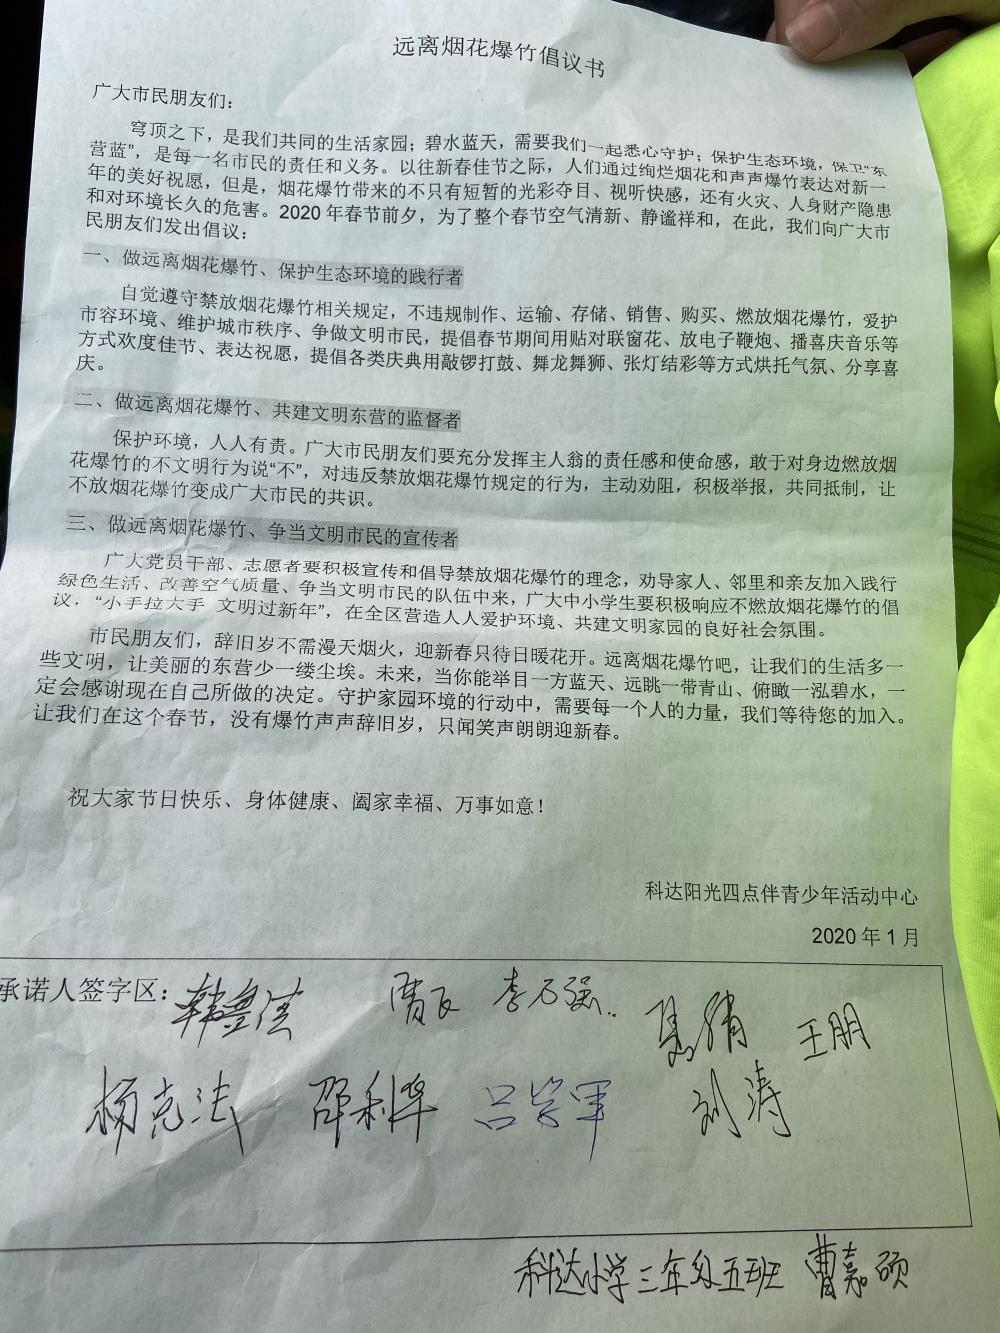 远离烟花爆竹倡议书
广大市民朋友们：
穹顶之下，是我们共同的生活家园；碧水蓝天，需要我们一起悉心守护；保护生态环境，保卫“东
营蓝”，是每一名市民的责任和义务。以往新春佳节之际，人们通过绚烂烟花和声声爆竹表达对新一
年的美好祝愿，但是，烟花爆竹带来的不只有短暂的光彩夺目、视听快感，还有火灾、人身财产隐患
和对环境长久的危害。2020年春节前夕，为了整个春节空气清新、静谧祥和，在此，我们向广大市
民朋友们发出倡议：
一、做远离烟花爆竹、保护生态环境的践行者
自觉遵守禁放烟花爆竹相关规定，不违规制作、运输、存储、销售、购买、燃放烟花爆竹，爱护
市容环境、维护城市秩序、争做文明市民，提倡春节期间用贴对联窗花、放电子鞭炮、播喜庆音乐等
方式欢度佳节、表达祝愿，提倡各类庆典用敲锣打鼓、舞龙舞狮、张灯结彩等方式烘托气氛、分享喜
庆。
二、做远离烟花爆竹、共建文明东营的监督者
保护环境，人人有责。广大市民朋友们要充分发挥主人翁的责任感和使命感，敢于对身边燃放烟
花爆竹的不文明行为说“不”，对违反禁放烟花爆竹规定的行为，主动劝阻，积极举报，共同抵制，让
不放烟花爆竹变成广大市民的共识。
三、做远离烟花爆竹、争当文明市民的宣传者
广大党员干部、志愿者要积极宣传和倡导禁放烟花爆竹的理念，劝导家人、邻里和亲友加入践行
绿色生活、改善空气质量、争当文明市民的队伍中来，广大中小学生要积极响应不燃放烟花爆竹的倡
议，“小手拉大手 文明过新年”，在全区营造人人爱护环境、共建文明家园的良好社会氛围。
市民朋友们，辞旧岁不需漫天烟火，迎新春只待日暖花开。远离烟花爆竹吧，让我们的生活多一
些文明，让美丽的东营少一缕尘埃。未来，当你能举目一方蓝天、远眺一带青山、俯瞰一泓碧水，一
定会感谢现在自己所做的决定。守护家园环境的行动中，需要每一个人的力量，我们等待您的加入。
让我们在这个春节，没有爆竹声声辞旧岁，只闻笑声朗朗迎新春。
祝大家节日快乐、身体健康、阖家幸福、万事如意！
科达阳光四点伴青少年活动中心
2020年1月
承诺人签字区：韩鲁佳 李万强 王朋
杨克法 邵利华 刘涛
科达小学三年级五班 曹嘉硕